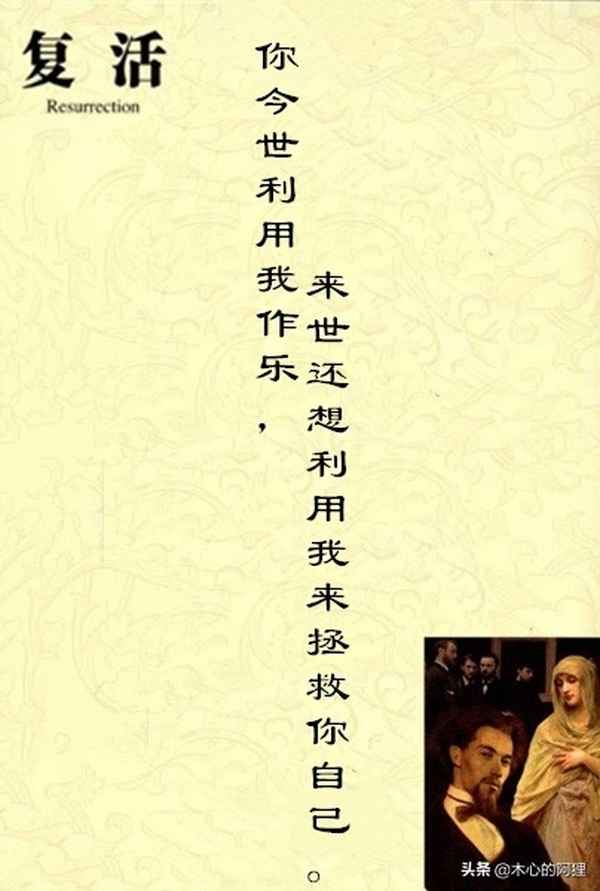 复活
Resurrection
你今世利用我作乐，
来世还想利用我来拯救你自己。
头条 @木心的阿狸